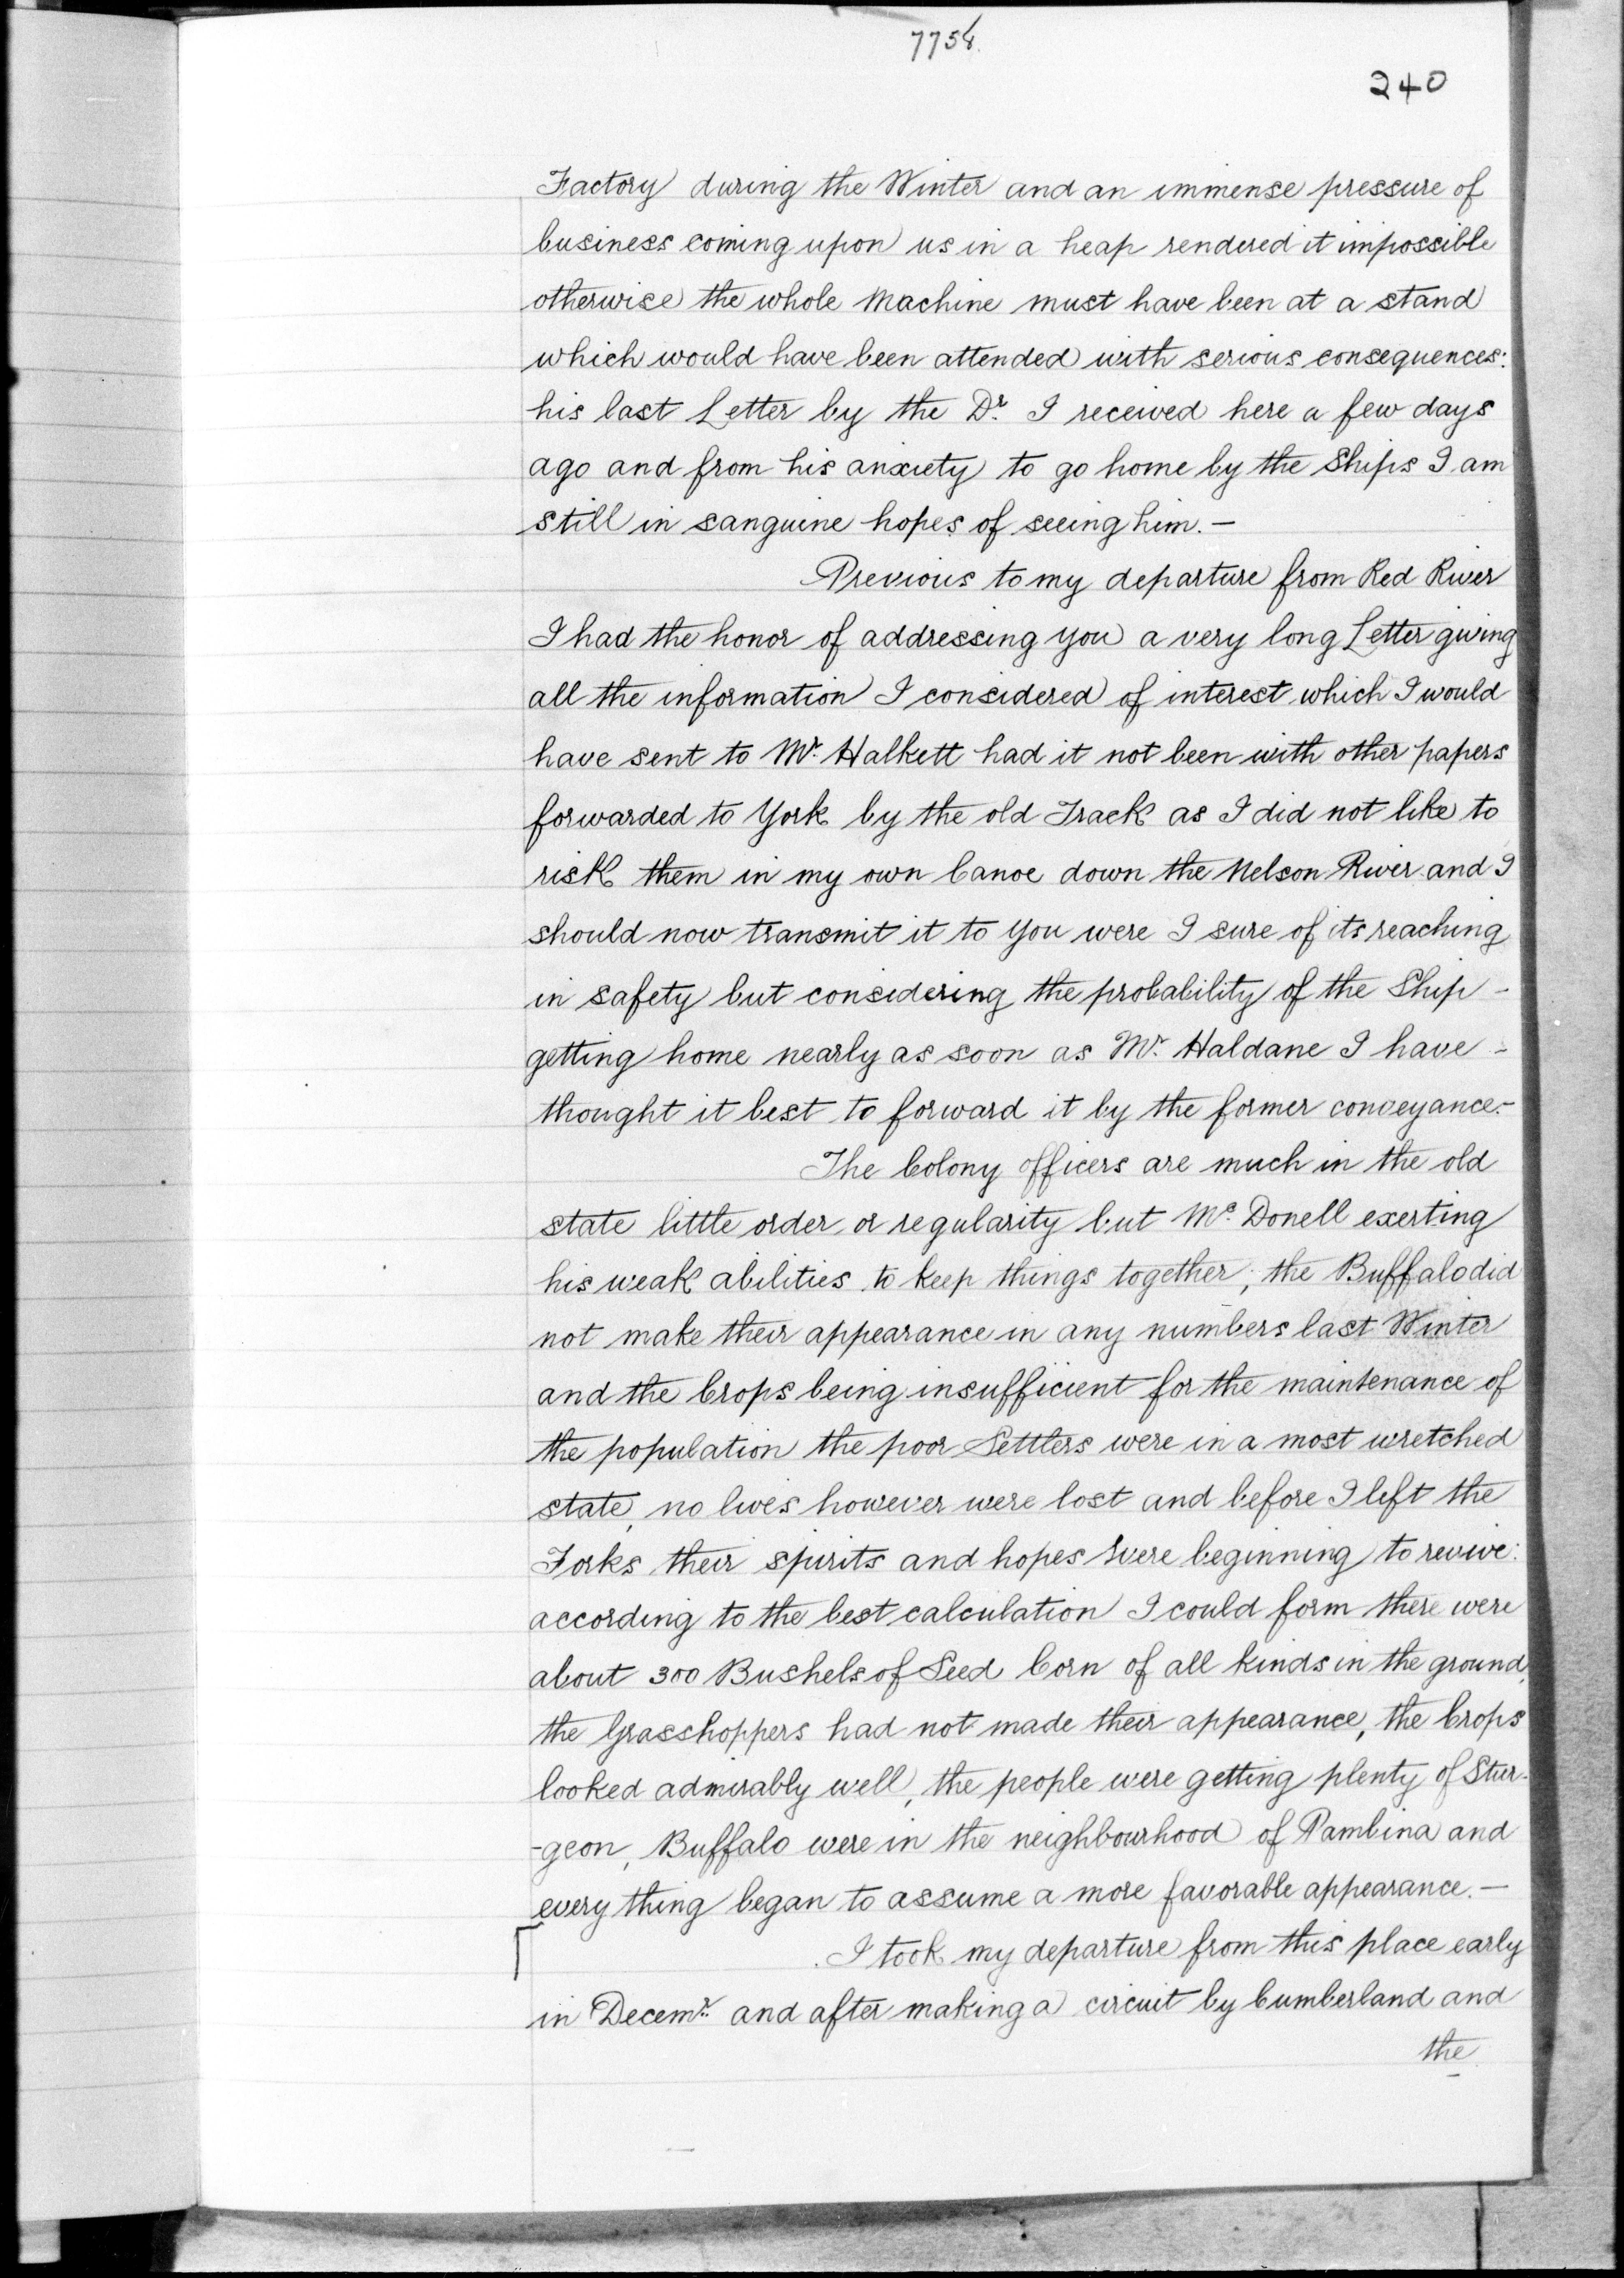 7758
240
Factory during the Winter and an immense pressure of
business coming upon us in a heap rendered it impossible
otherwise the whole Machine must have been at a stand
which would have been attended with serious consequences:
his last Letter by the Dr. I received here a few days
ago and from his anxiety to go home by the Ships I am
still in sanguine hopes of seeing him.—
Previous to my departure from Red River
I had the honor of addressing you a very long Letter giving
all the information I considered of interest which I would
have sent to Mr. Halkett had it not been with other papers
forwarded to York by the old Track as I did not like to
risk them in my own Canoe down the Nelson River and I
should now transmit it to you were I sure of its reaching
in safety but considering the probability of the Ship -
getting home nearly as soon as Mr. Haldane I have -
thought it best to forward it by the former conveyance.-
The Colony officers are much in the old
state little order or regularity but Mc. Donell exerting
his weak abilities to keep things together; the Buffalo did
not make their appearance in any numbers last Winter
and the Crops being insufficient for the maintenance of
the population the poor Settlers were in a most wretched
state, no lives however were lost and before I left the
Forks their spirits and hopes were beginning to revive:
according to the best calculation I could form there were
about 300 Bushels of Seed Corn of all kinds in the ground,
the Grasshoppers had not made their appearance, the Crops
looked admirably well, the people were getting plenty of Stur-
-geon, Buffalo were in the neighbourhood of Pambina and
every thing began to assume a more favorable appearance.—
I took my departure from this place early
in Decemr. and after making a circuit by Cumberland and
the